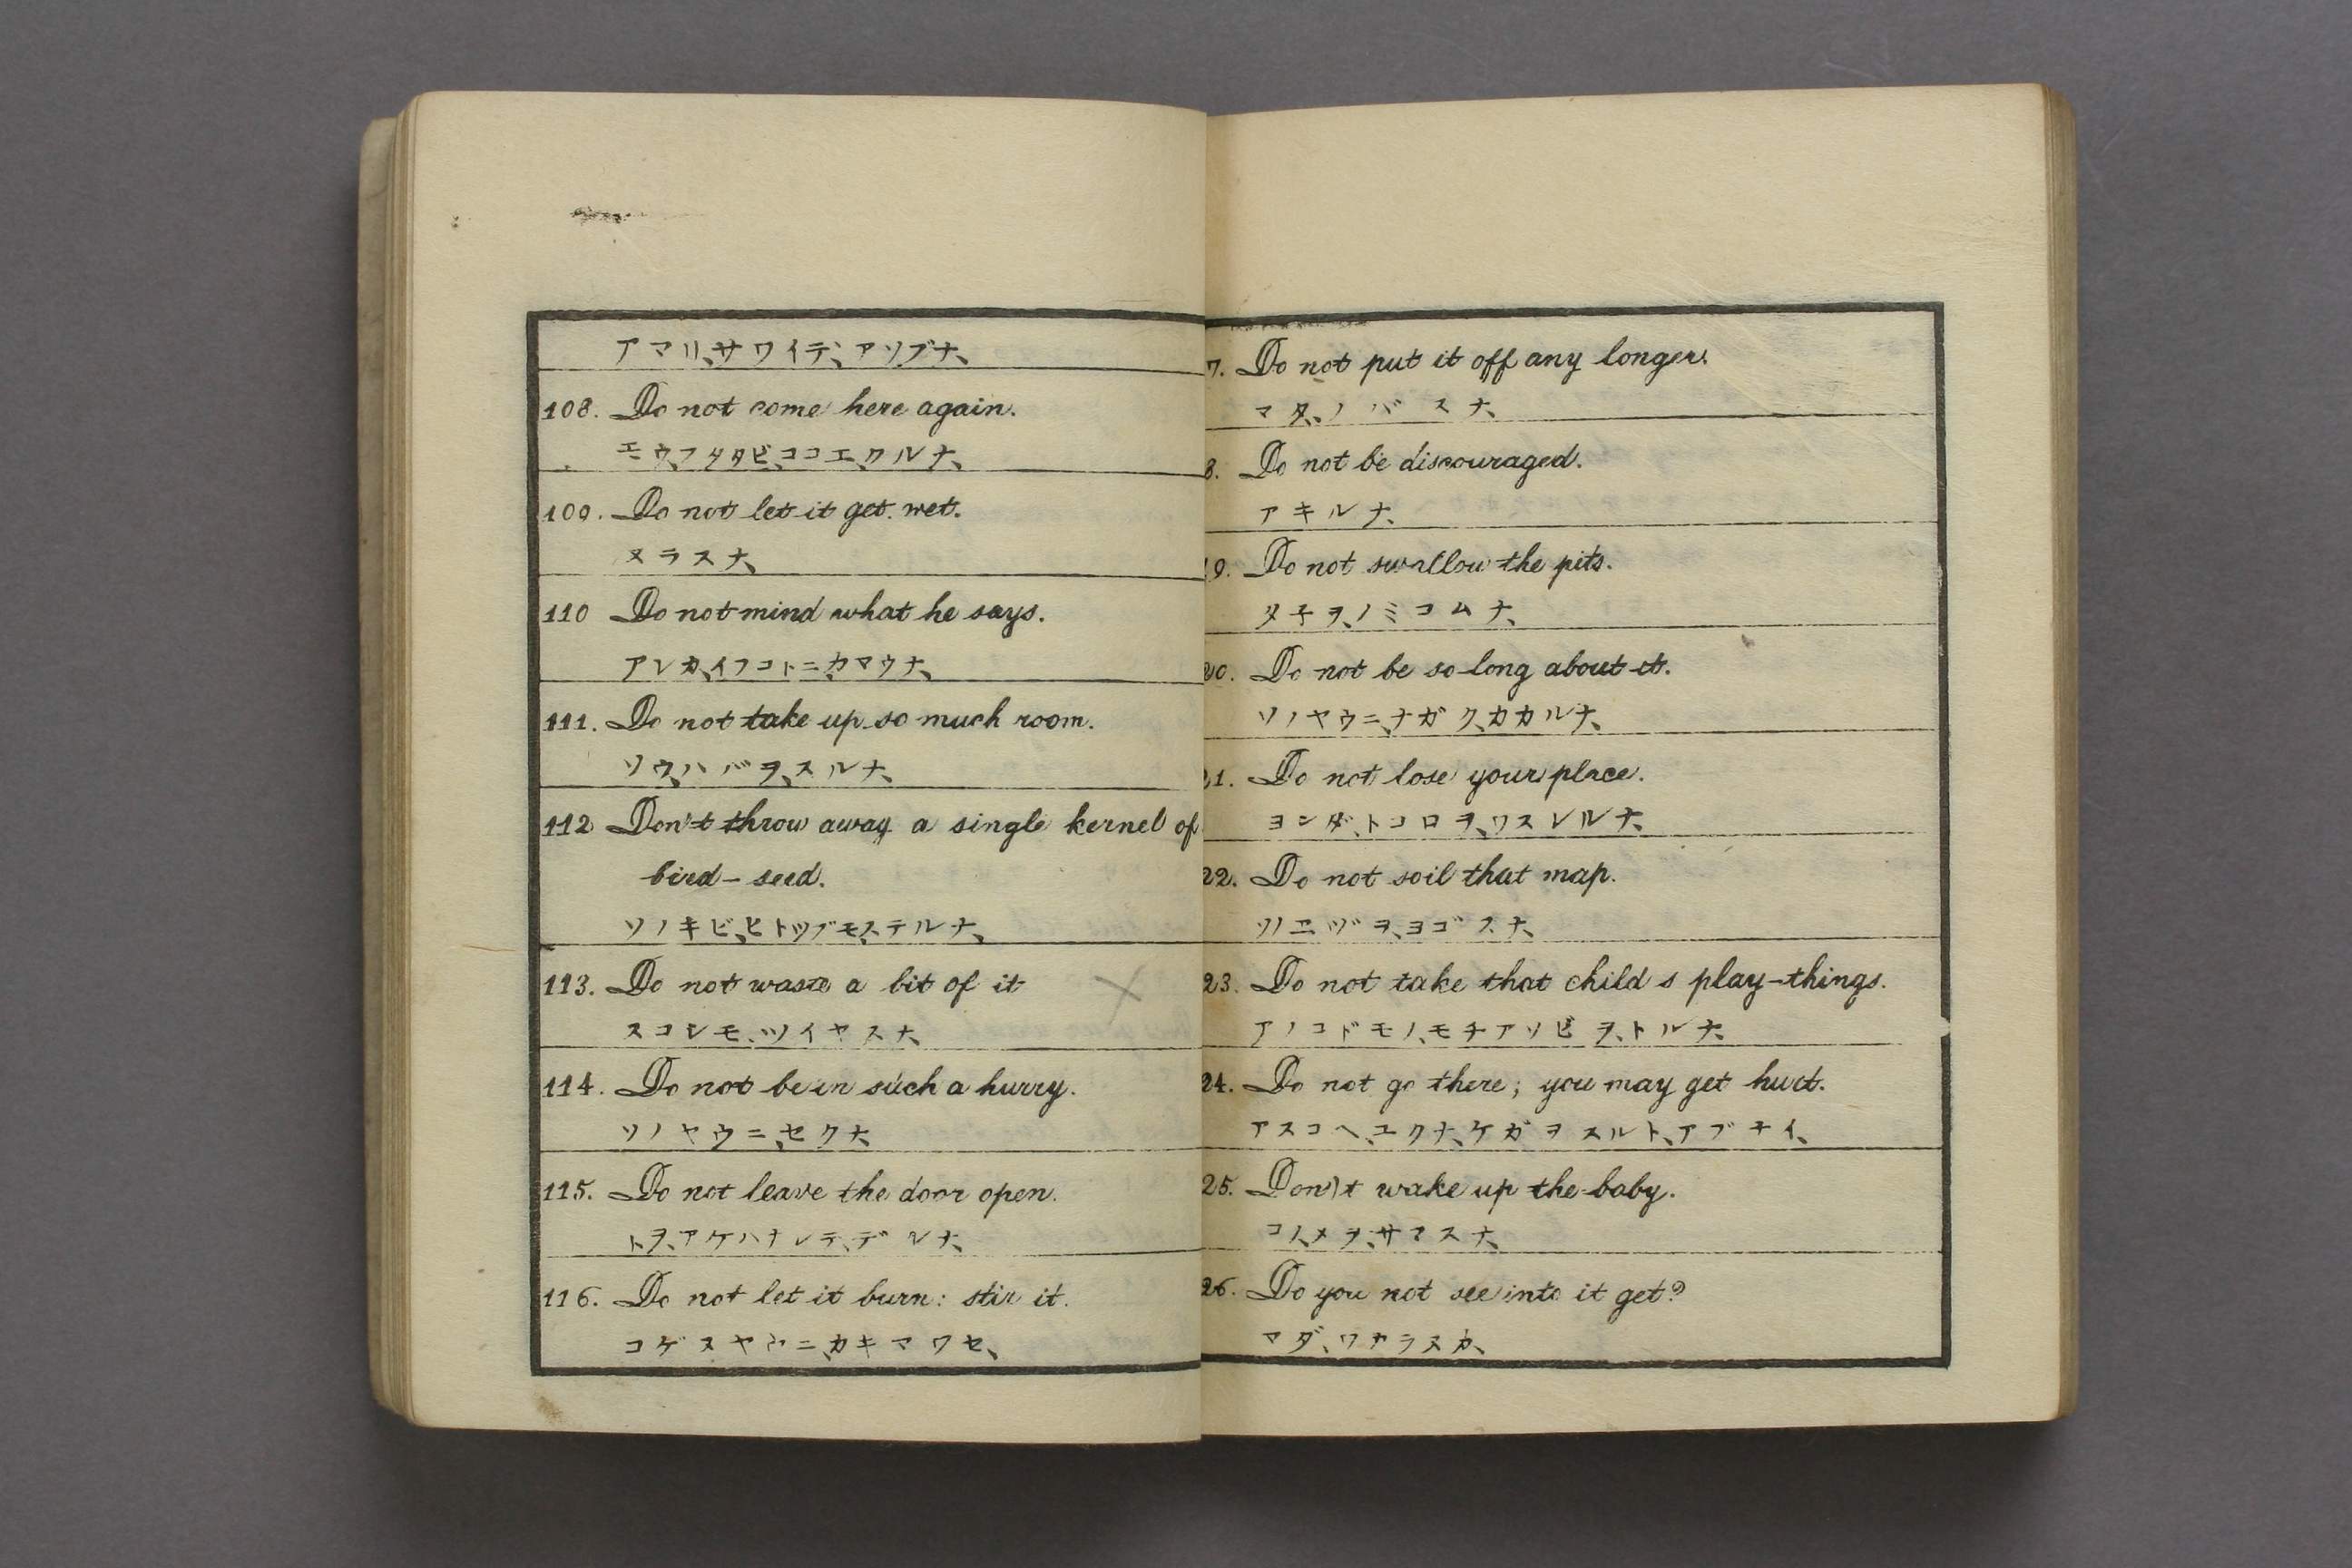 アマリ、サワイテ、アソブナ、
108. Do not come here again.
モウ、フタタビ、ココエ、クルナ、
109. Do not let it get wet.
ヌラスナ、
110 Do not mind what he says.
アレカ、イフコトニ、カマウナ、
111. Do not take up so much room.
ソウ、ハバヲ、スルナ、
112 Don't throw away a single kernel of
bird-seed.
ソノキビ、ヒトツブモ、ステルナ、
113. Do not waste a bit of it
スコシモ、ツイヤスナ、
114. Do not be in such a hurry.
ソノヤウニ、セクナ、
115. Do not leave the door open.
トヲ、アケハナシテ、デルナ、
116. Do not let it burn: stir it.
コゲヌヤウニ、カキマワセ、
7. Do not put it off any longer.
マタ、ノバスナ、
8. Do not be discouraged.
アキルナ、
19. Do not swallow the pits.
タ子ヲ、ノミコムナ、
20. Do not be so long about it.
ソノヤウニ、ナガク、カカルナ、
21. Do not lose your place.
ヨンダ、トコロヲ、ワスレルナ、
22. Do not soil that map.
ソノエヅヲ、ヨゴスナ、
23. Do not take that child s play-things.
アノコドモノ、モチアソビヲ、トルナ、
24. Do not go there; you may get hurt.
アスコヘ、ユクナ、ケガヲスルト、アブナイ、
25. Don't wake up the baby.
コノ、メヲ、サマスナ、
26. Do you not see into it get?
マダ、ワカラヌカ、